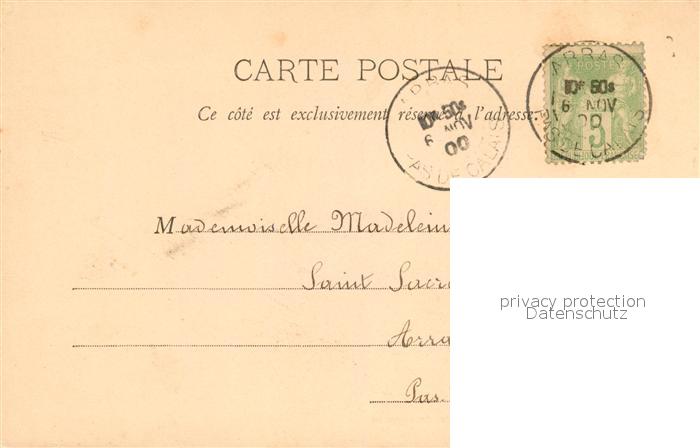 CARTE POSTALE
Ce côté est exclusivement réservé à l'adresse.
ARRAS
10ᴱ 50s
6 NOV
00
PAS DE CALAIS
POSTES
ARRAS
10ᴱ 50s
6 NOV
00
PAS DE CALAIS
5
Mademoiselle Madelein
Saint Sacr
Arra
Pas.
privacy protection
Datenschutz